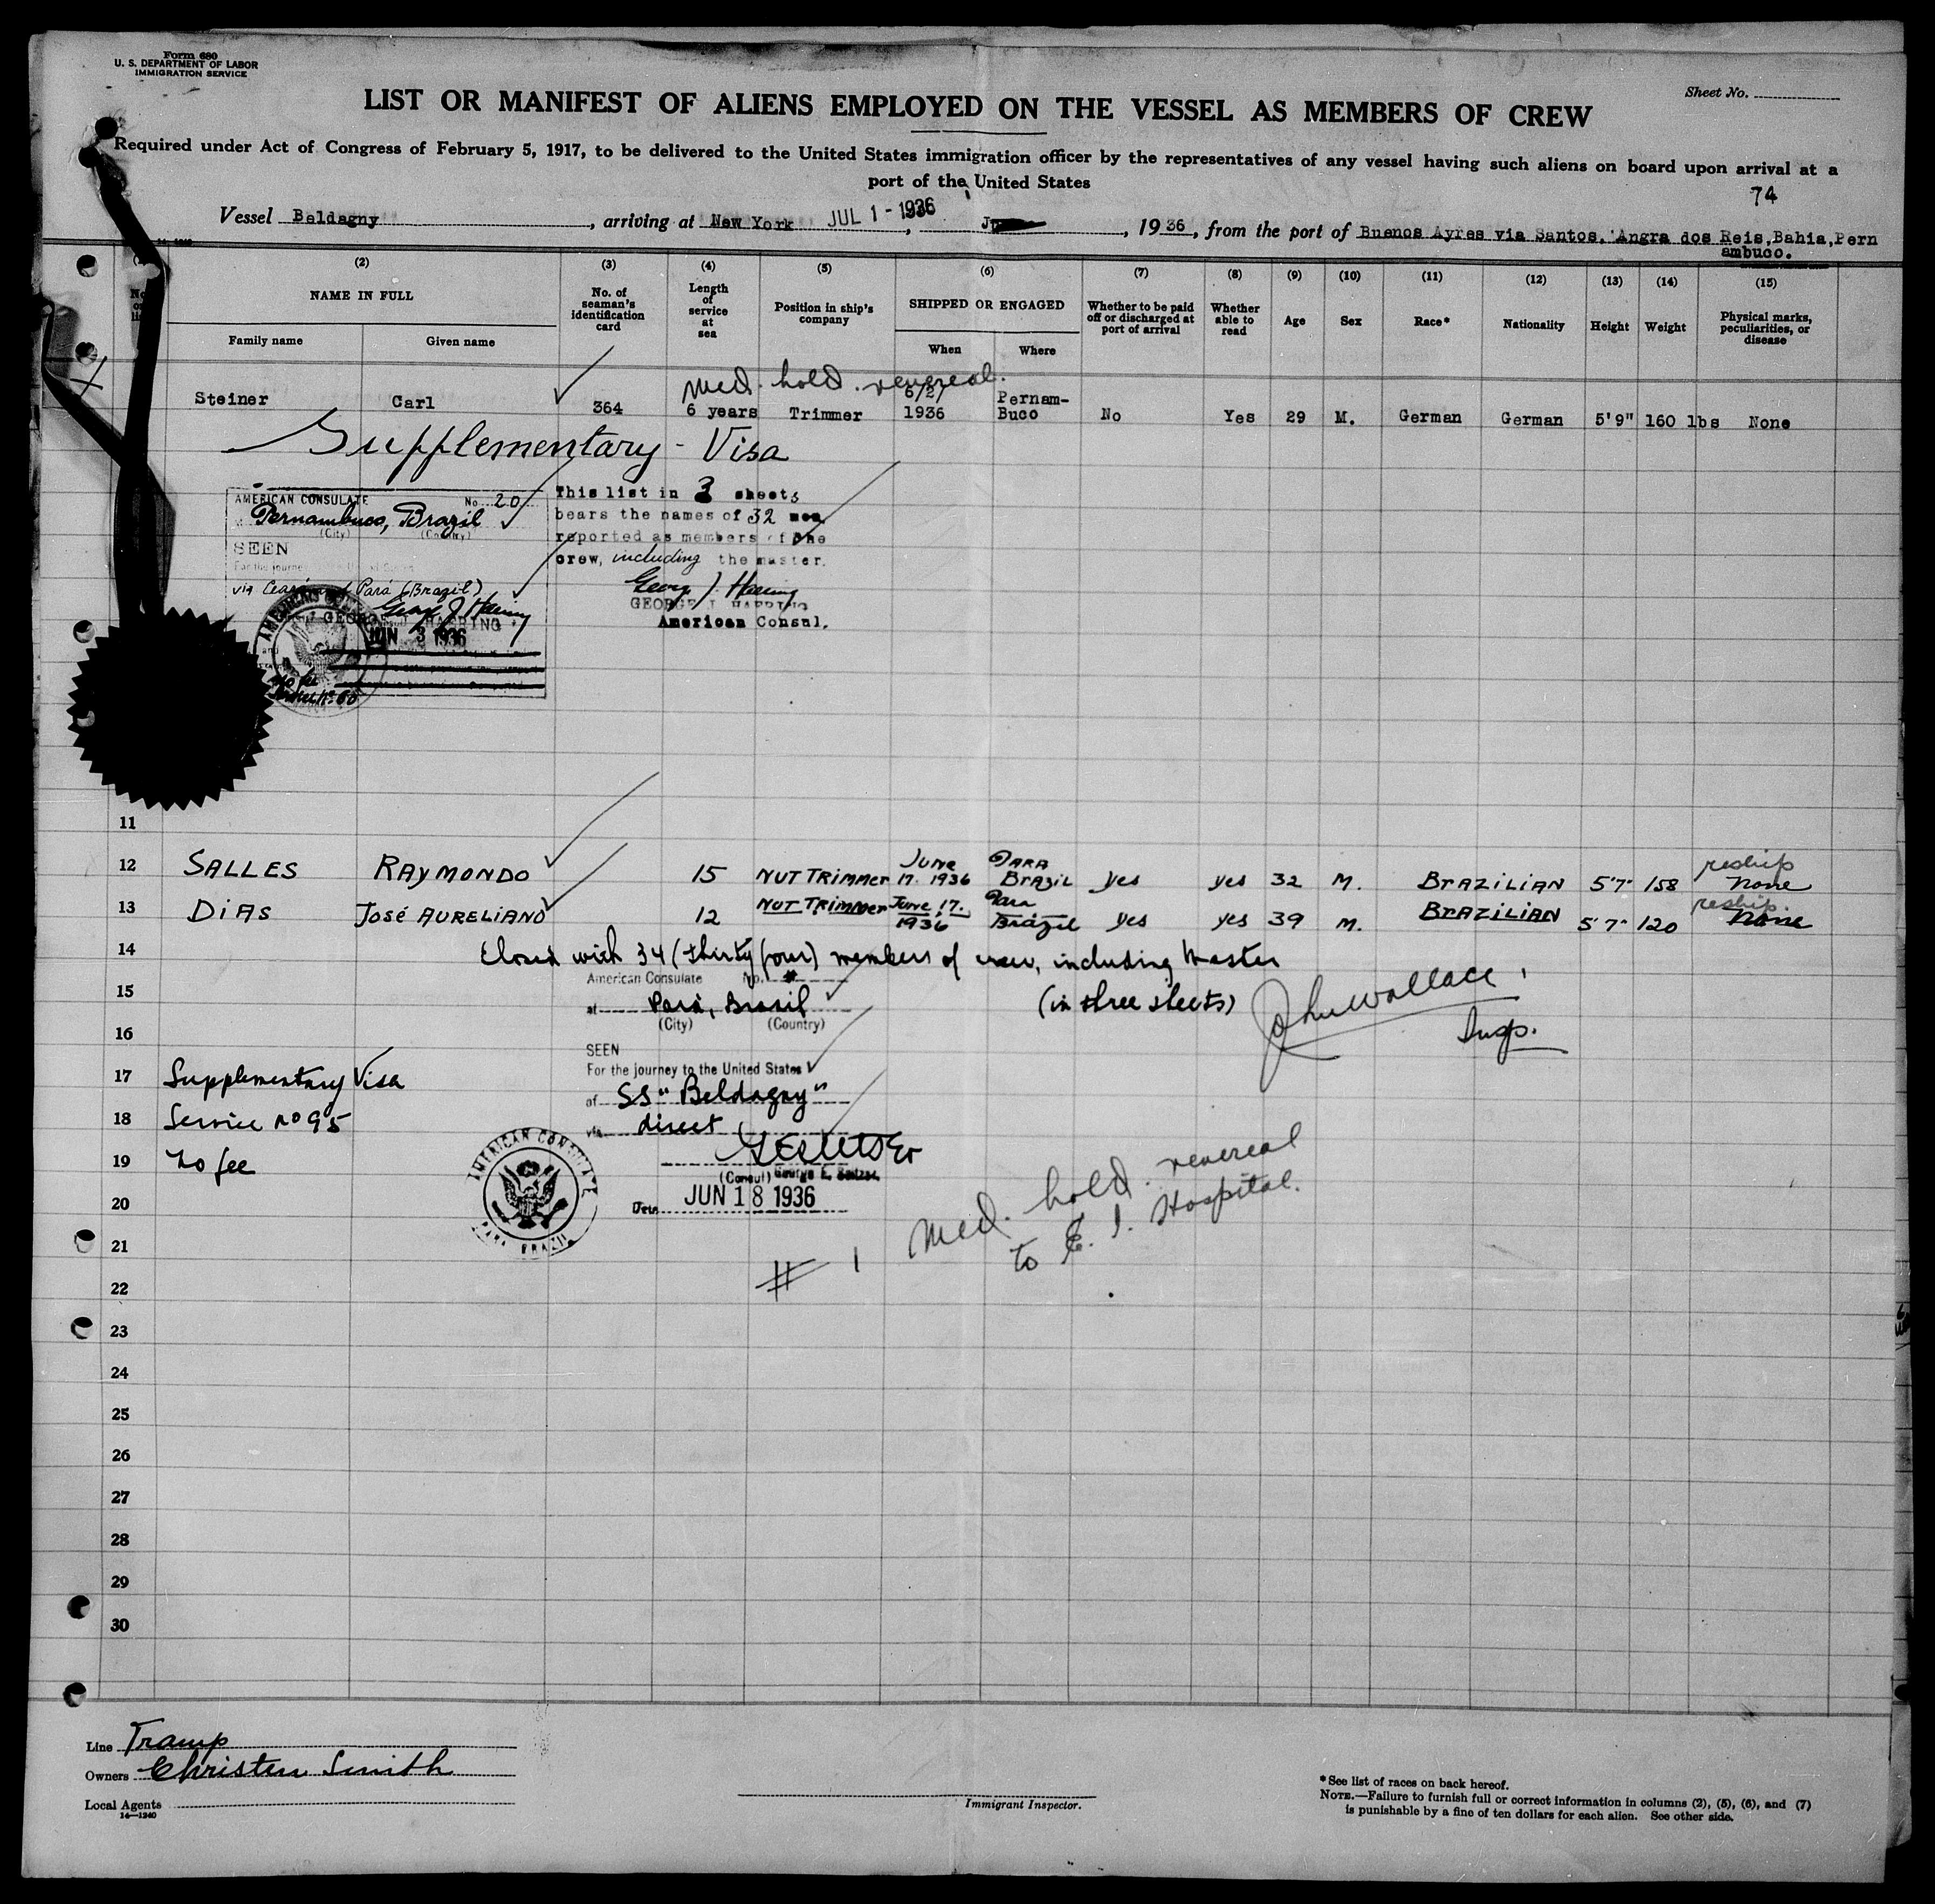 Form 680
U. S. DEPARTMENT OF LABOR
IMMIGRATION SERVICE
Sheet No.
LIST OR MANIFEST OF ALIENS EMPLOYED ON THE VESSEL AS MEMBERS OF CREW
Required under Act of Congress of February 5, 1917, to be delivered to the United States immigration officer by the representatives of any vessel having such aliens on board upon arrival at a
port of the United States
74
Vessel Beldagny, arriving at New York JUL 1 - 1936, 1936, from the port of Buenos Ayres via Santos, Angra dos Reis, Bahia, Pern
ambuco.
(2) (3) (4) (5) (6) (7) (8) (9) (10) (11) (12) (13) (14) (15)
NAME IN FULL
Family name Given name
No. of seaman's identification card
Length of service at sea
Position in ship's company
SHIPPED OR ENGAGED
When Where
Whether to be paid off or discharged at port of arrival
Whether able to read
Age
Sex
Race*
Nationality
Height
Weight
Physical marks, peculiarities, or disease
Med. hold. venereal.
Steiner Carl 364 6 years Trimmer 1936 Pernam-Buco No Yes 29 M. German German 5'9" 160 lbs None
Supplementary - Visa
AMERICAN CONSULATE No. 20
Pernambuco, Brazil
(City) (Country)
SEEN
For the journey
via Ceará and Pará (Brazil)
George J. Haering
GEORGE J. HAERING
JUN 3 1936
No fee
This list in 3 sheets
bears the names of 32 men,
reported as members of the
crew, including the master.
George J. Haering
GEORGE J. HAERING
American Consul.
11
12 SALLES RAYMONDO 15 NUT TRIMMER JUNE 17. 1936 PARA BRAZIL yes yes 32 M. BRAZILIAN 5'7" 158 reship none
13 DIAS JOSÉ AURELIANO 12 NUT TRIMMER June 17. 1936 Para Brazil yes yes 39 M. BRAZILIAN 5'7" 120 reship. none
14 Closed with 34 (thirty four) members of crew, including Master
(in three sheets)
John Wallace
Insp.
American Consulate No. #
15 at Pará, Brazil
(City) (Country)
16
SEEN
For the journey to the United States
17 Supplementary Visa
of SS "Beldagny"
18 Service No 95
via direct
19 No fee
(Consul) George E. Seltzer
Date JUN 18 1936
AMERICAN CONSULATE
PARA BRAZIL
20
21
# 1 Med. hold. venereal
to E. I. Hospital.
22
23
24
25
26
27
28
29
30
Line Tramp
Owners Christen Smith
Local Agents
14—1240
Immigrant Inspector.
*See list of races on back hereof.
NOTE.—Failure to furnish full or correct information in columns (2), (5), (6), and (7)
is punishable by a fine of ten dollars for each alien. See other side.